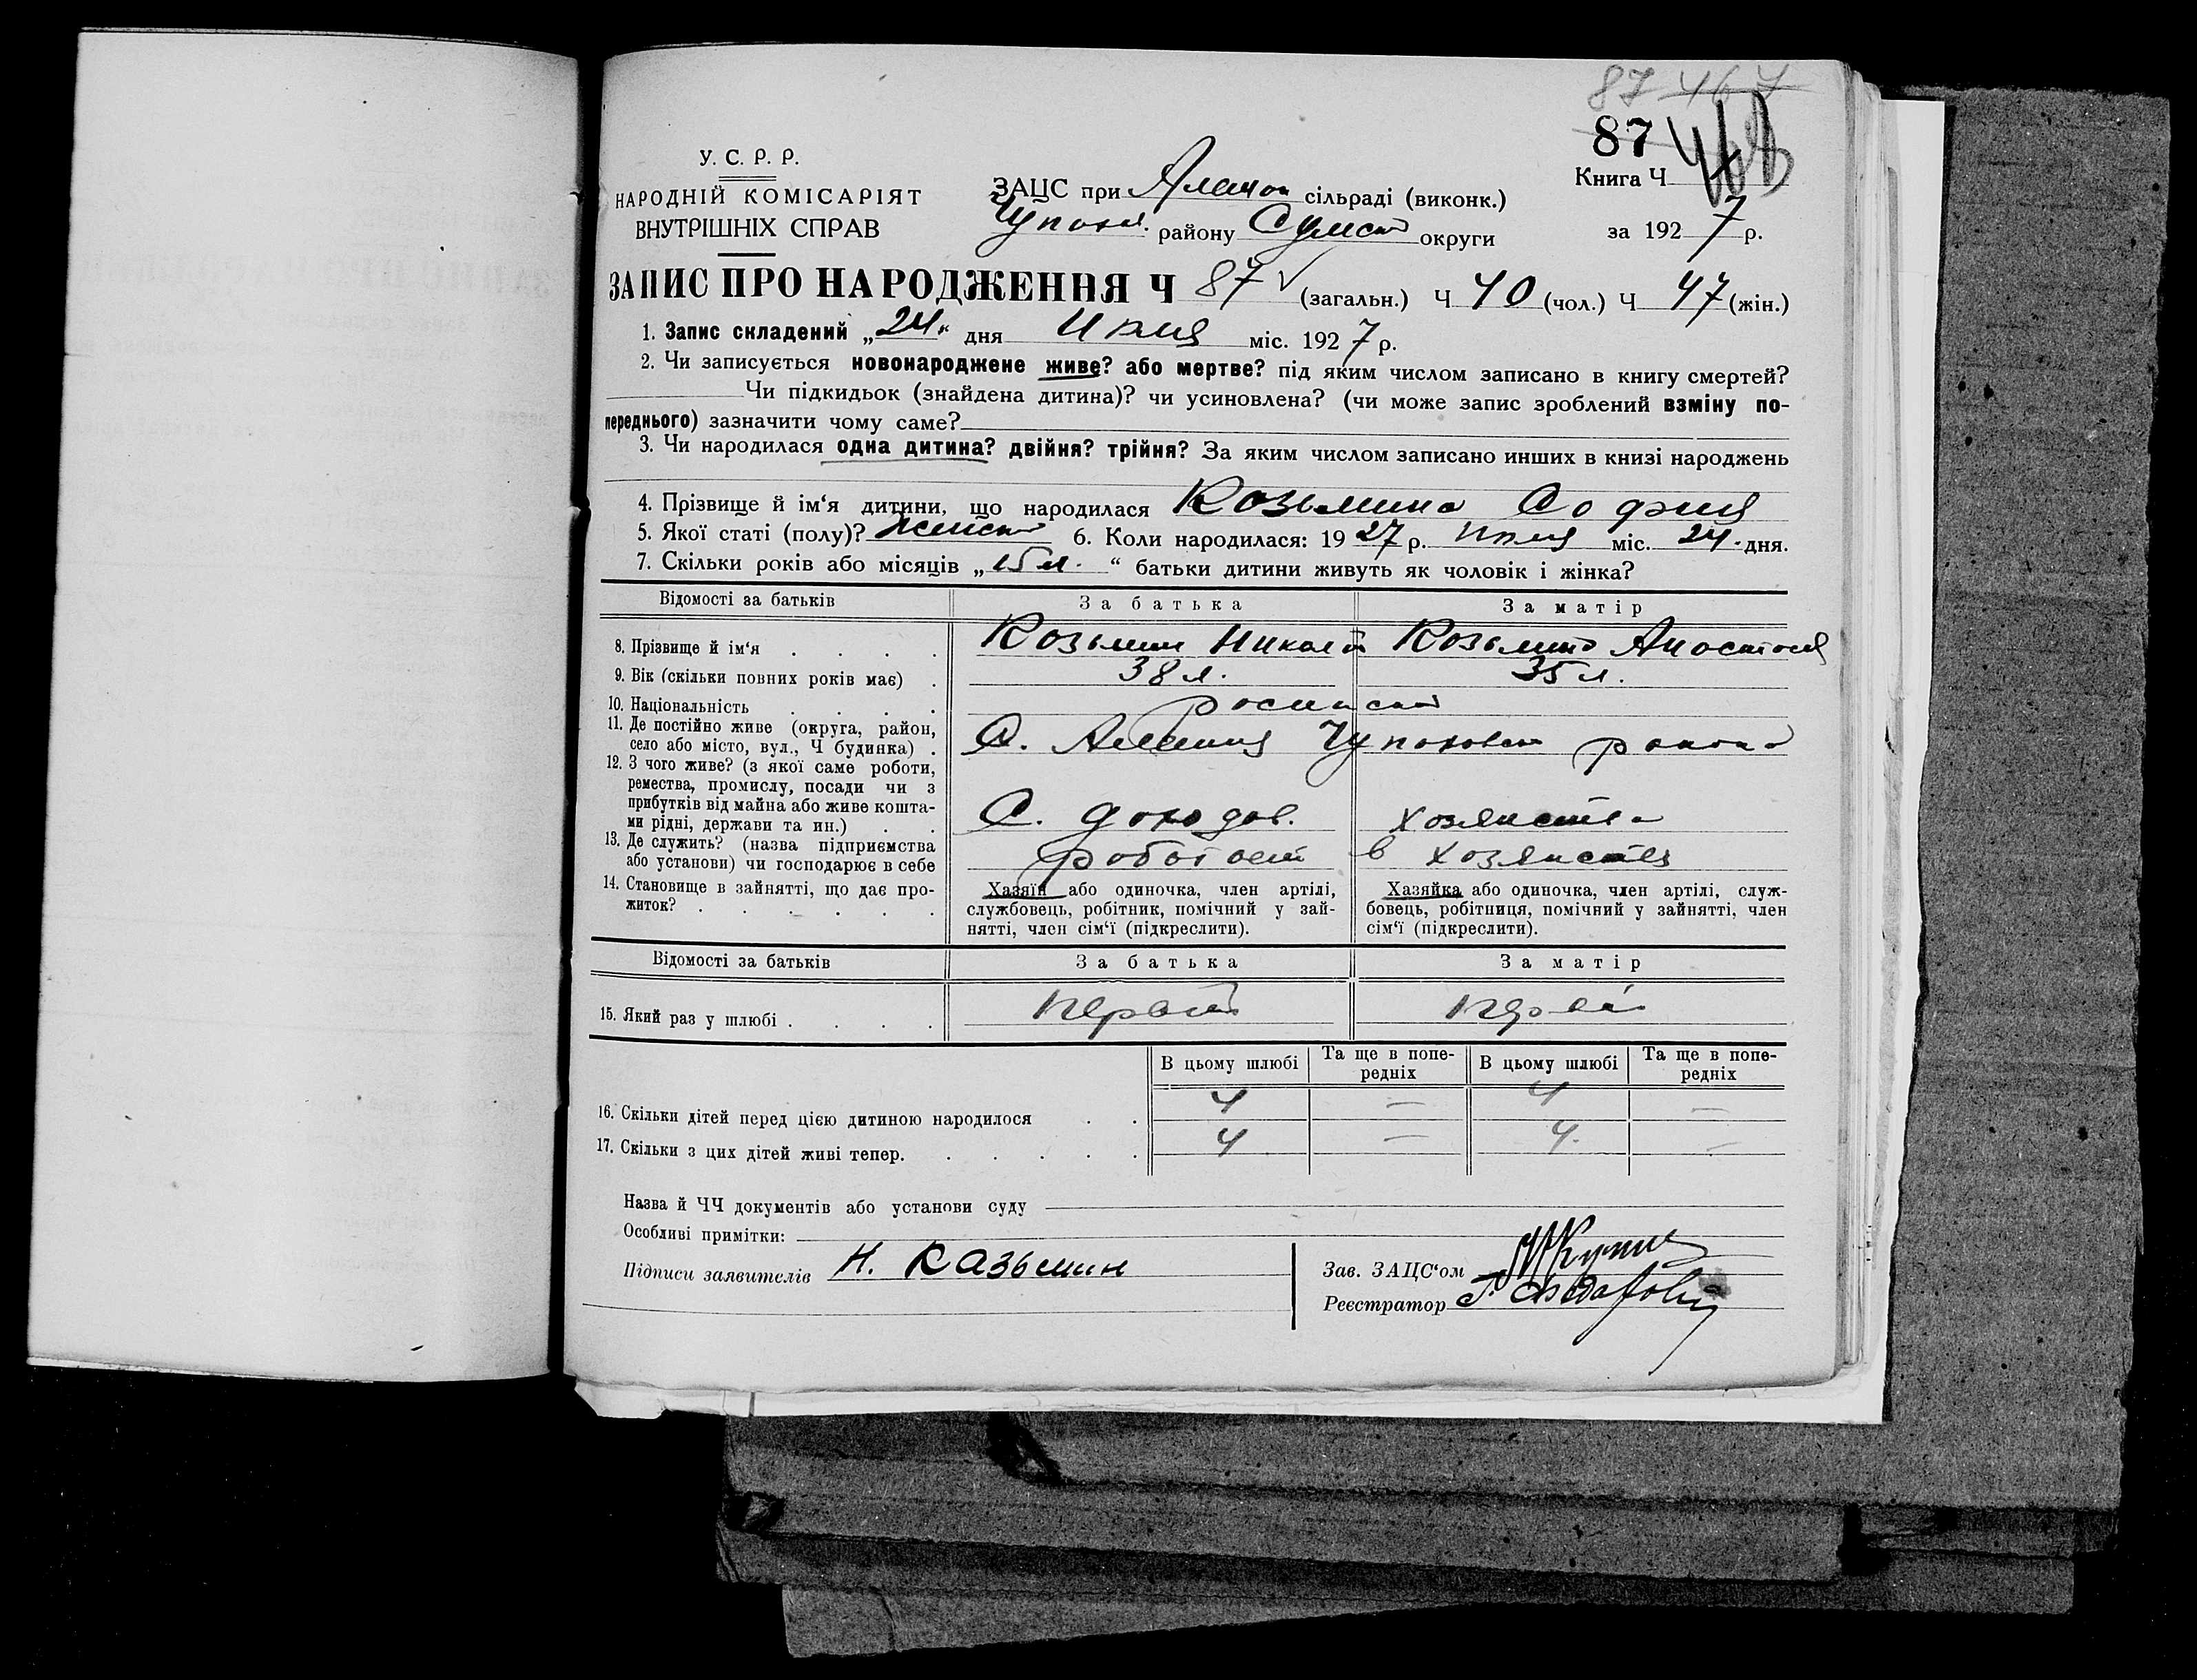 87 467
87 468
У. С. Р. Р.
НАРОДНІЙ КОМІСАРІЯТ
ВНУТРІШНІХ СПРАВ
ЗАЦС при сільраді (виконк.)
Чупахо. району Сумск округи
Книга Ч
за 1927 р.
ЗАПИС ПРО НАРОДЖЕННЯ Ч 87 (загальн.) Ч 40 (чол.) Ч 47 (жін.)
1. Запис складений „24“ дня Июля міс. 1927 р.
2. Чи записується новонароджене живе? або мертве? під яким числом записано в книгу смертей?
Чи підкидьок (знайдена дитина)? чи усиновлена? (чи може запис зроблений взміну по-
переднього) зазначити чому саме?
3. Чи народилася одна дитина? двійня? трійня? За яким числом записано инших в книзі народжень
4. Прізвище й ім‘я дитини, що народилася Козьмина София
5. Якої статі (полу)? Женск 6. Коли народилася: 1927 р. Июля міс. 24. дня.
7. Скільки років або місяців „15 л.“ батьки дитини живуть як чоловік і жінка?
Відомості за батьків За батька За матір
8. Прізвище й ім‘я . . . . Козьмин Николай Козьмина Анастасия
9. Вік (скільки повних років має) . 38 л. 35 л.
10. Національність . . . .
11. Де постійно живе (округа, район,
село або місто, вул., Ч будинка) . С. Чупаховск района
12. З чого живе? (з якої саме роботи,
ремества, промислу, посади чи з
прибутків від майна або живе кошта-
ми рідні, держави та ин.) . . С. доходов. хозяиства
13. Де служить? (назва підприємства
або установи) чи господарює в себе работает в хозяистве
14. Становище в зайнятті, що дає про-
житок? . . . . . .
Хазяїн або одиночка, член артілі,
службовець, робітник, помічний у зай-
нятті, член сім‘ї (підкреслити).
Хазяйка або одиночка, член артілі, служ-
бовець, робітниця, помічний у зайнятті, член
сім‘ї (підкреслити).
Відомості за батьків За батька За матір
15. Який раз у шлюбі . . . . Первый Первый
В цьому шлюбі Та ще в попе-
редніх В цьому шлюбі Та ще в попе-
редніх
16. Скільки дітей перед цією дитиною народилося . . 4 — 4 —
17. Скільки з цих дітей живі тепер. . . . . . 4 — 4. —
Назва й ЧЧ документів або установи суду
Особливі примітки:
Підписи заявителів Н. Казьмин
Зав. ЗАЦС‘ом
Реєстратор